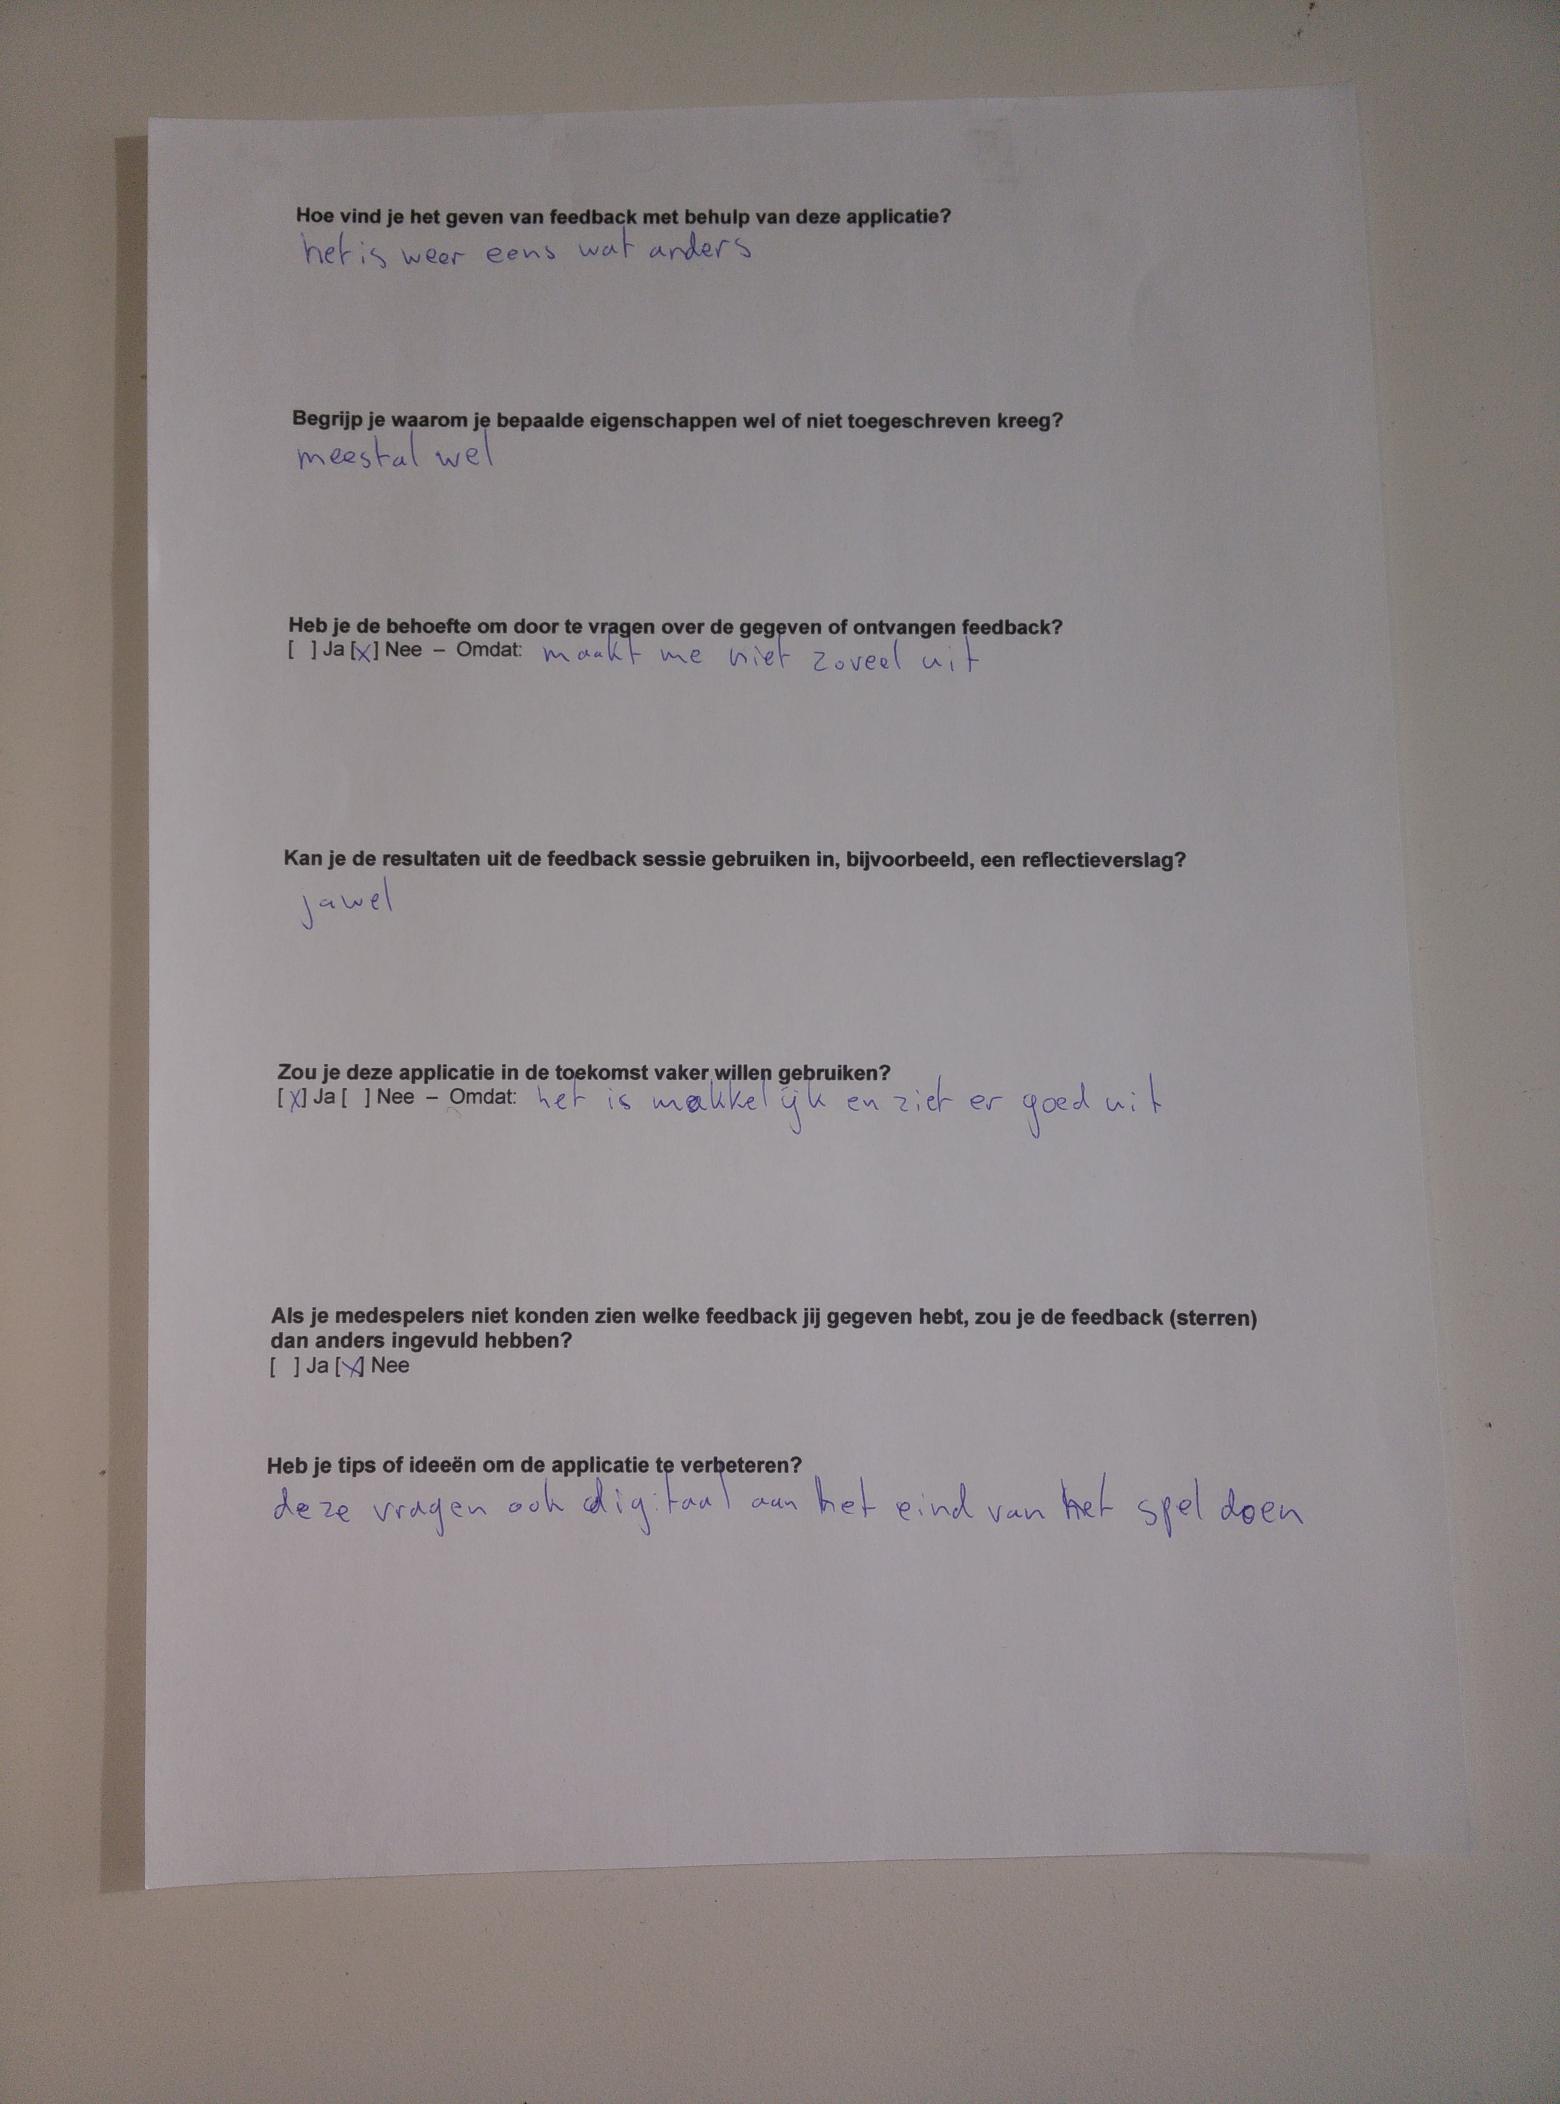 Hoe vind je het geven van feedback met behulp van deze applicatie?
het is weer eens wat anders
Begrijp je waarom je bepaalde eigenschappen wel of niet toegeschreven kreeg?
meestal wel
Heb je de behoefte om door te vragen over de gegeven of ontvangen feedback?
[ ] Ja [x] Nee – Omdat: maakt me niet zoveel uit
Kan je de resultaten uit de feedback sessie gebruiken in, bijvoorbeeld, een reflectieverslag?
jawel
Zou je deze applicatie in de toekomst vaker willen gebruiken?
[x] Ja [ ] Nee – Omdat: het is makkelijk en ziet er goed uit
Als je medespelers niet konden zien welke feedback jij gegeven hebt, zou je de feedback (sterren)
dan anders ingevuld hebben?
[ ] Ja [x] Nee
Heb je tips of ideeën om de applicatie te verbeteren?
deze vragen ook digitaal aan het eind van het spel doen